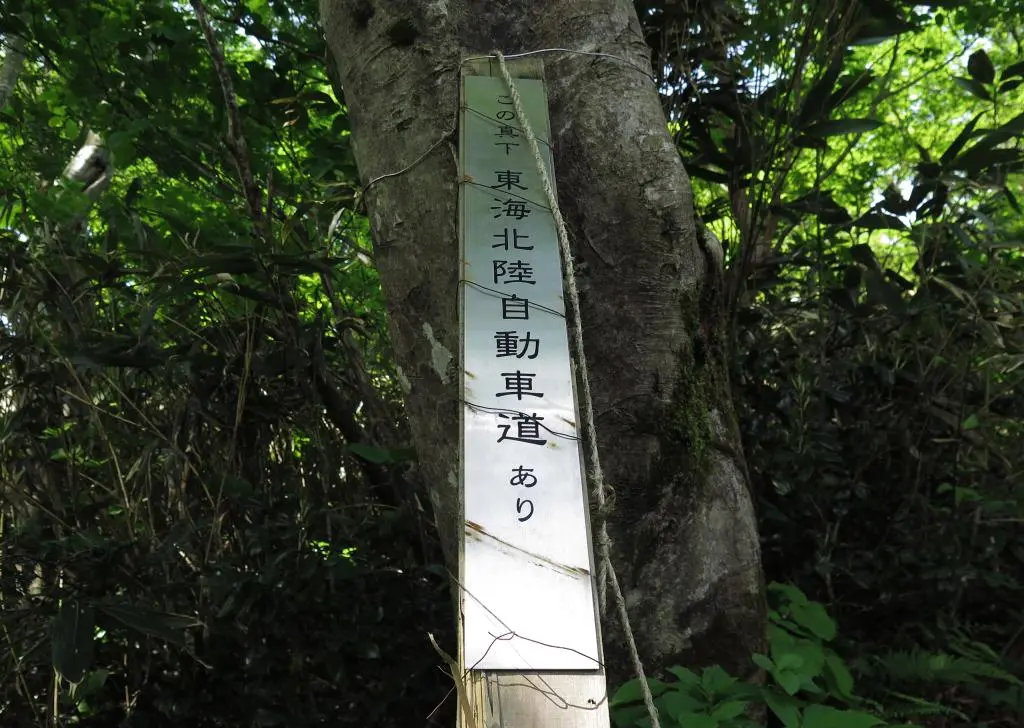 この真下 東海北陸自動車道 あり